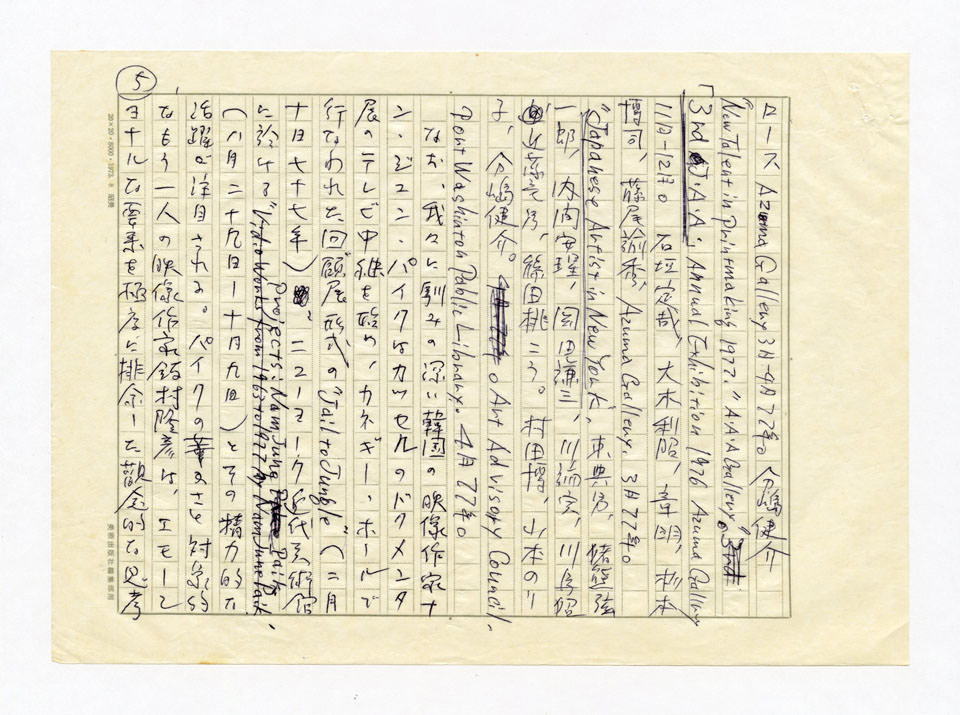 ⑤
ローズ Azuma Gallery 3月-4月77年。 分嶋健介
New Talent in Printmaking 1977. "A・A・A Gallery"
「3rd J・A・A・Annual Exhibition 1976 Azuma Gallery
11月-12月。 石垣定哉、大木利昭、 杉本
博司、藤尾瑜香、Azuma Gallery. 3月77年。
"Japanese Artist in New York" 東典男、猪熊弦
一郎、内間安瑆、岡田謙三、川端実、川島
近藤竜男、篠田桃こう。村田博、山本のり
子、分嶋健介。 Art Advisory Council,
Port Washinton Public Library. 4月77年。
なお、我々に馴みの深い韓国の映像作家ナ
ン・ジュン・パイクはカッセルのドクメンタ
展のテレビ中継を始め、カネギー・ホールで
行なわれた回顧展形式の"Jail to Jungle"(二月
十日七十七年)、ニューヨーク近代美術館
に於ける "Projects: Nam Jung Paik, Vidio Works from 1963 to 1977 by Nam June Paik,
(八月二十九日ー十月九日)とその精力的な
活躍が注目される。パイクの華やかさと対象的
なもう一人の映像作家飯村隆彦は、エモーシ
ョナルな要素を極度に排除した観念的な思考
20×20=8000・1973. 8
美術出版社編集部用